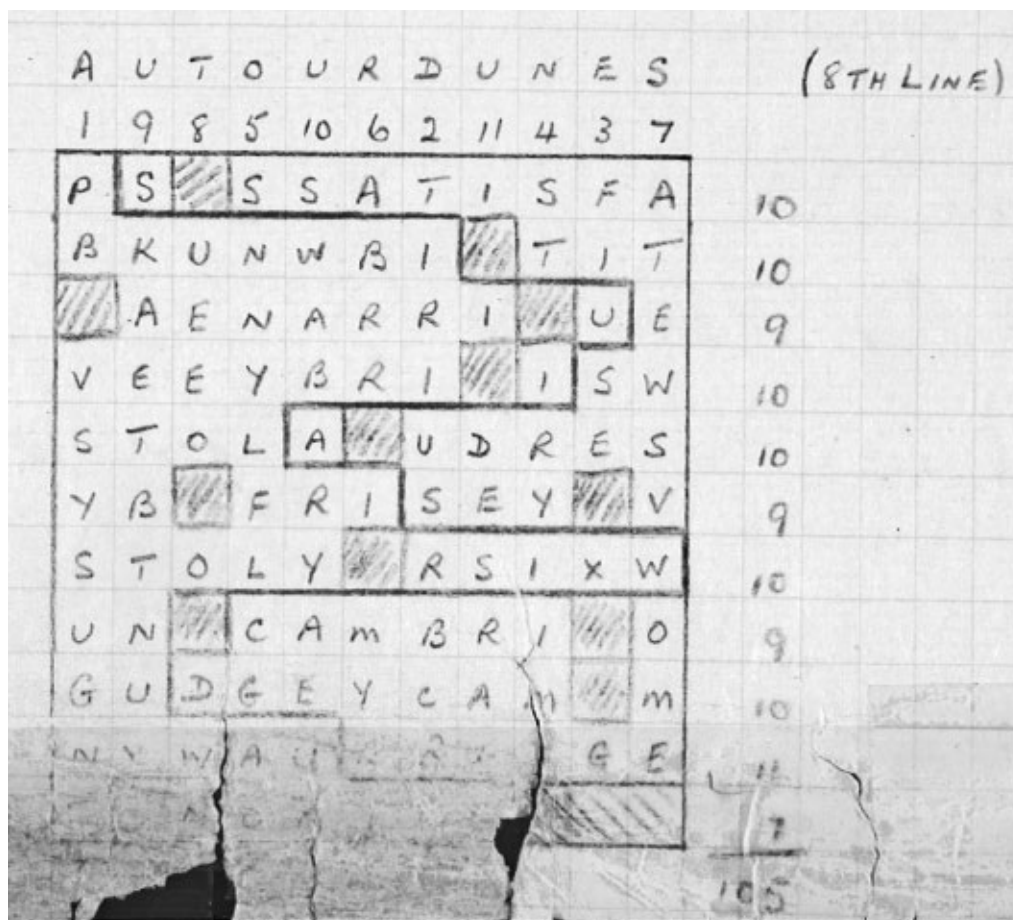 A U T O U R D U N E S (8TH LINE)
1 9 8 5 10 6 2 11 4 3 7
P S S S A T I S F A 10
B K U N W B I T I T 10
A E N A R R I U E 9
V E E Y B R I I S W 10
S T O L A U D R E S 10
Y B F R I S E Y V 9
S T O L Y R S I X W 10
U N C A m B R I O 9
G U D G E Y C A m m 10
N Y W A G E 11
7
105